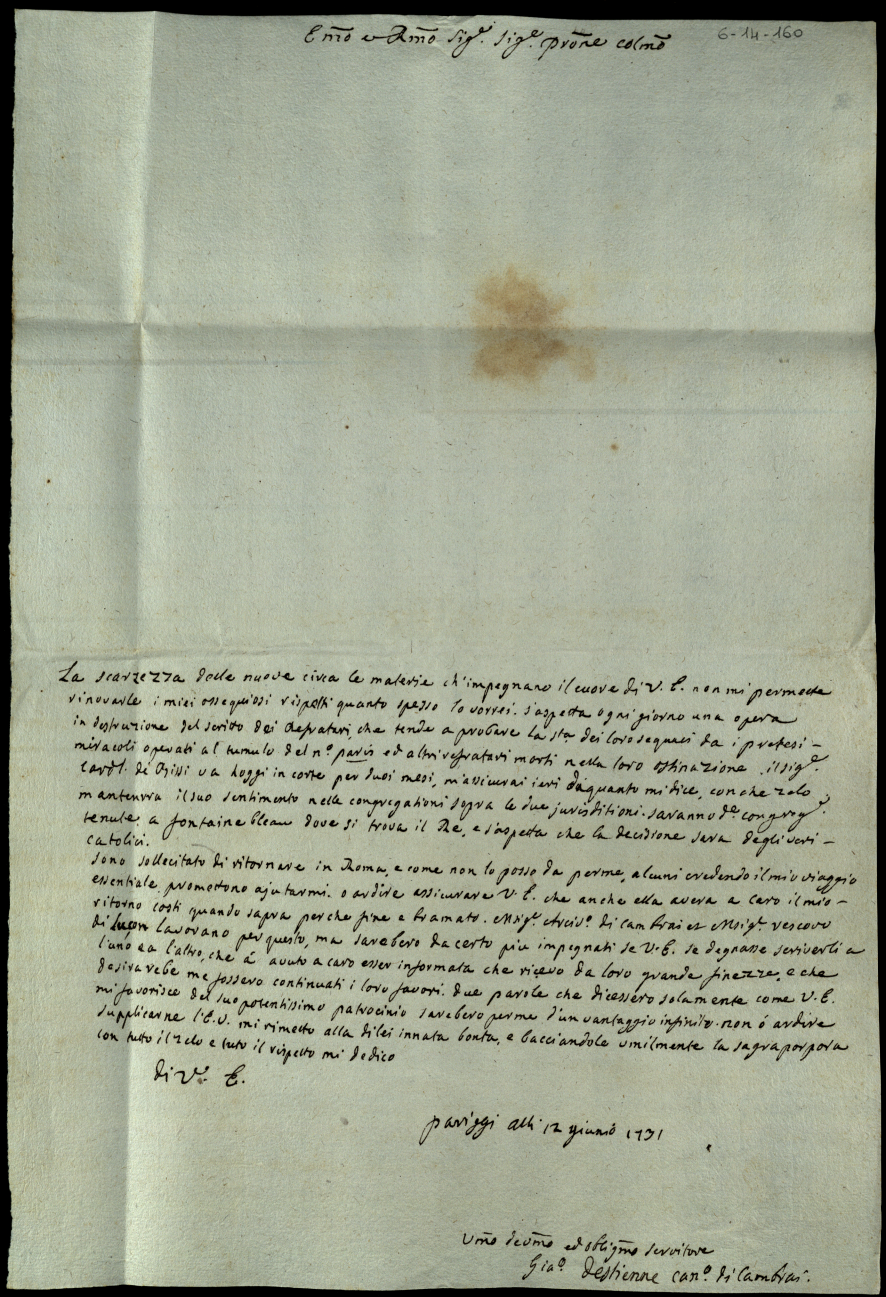 6-14-160
Emo e Rmo Sigre. Sigre. prone colmo
La scarzezza delle nuove circa le materie ch'impegnano il cuore di V. E. non mi permette
rinovarle i miei ossequiosi rispetti quanto spesso lo vorrei. s'aspetta ogni giorno una opera
in destruzione del scritto dei Refratari, che tende a probare la sta dei loro sequaci da i pretesi-
miracoli operati al tumulo del no. paris ed altri refratari morti nella loro ostinazione. il sigre.
Cardl. de Bissi va hoggi in corte per duoi mesi, m'assicurai ieri da quanto mi dice, con che zelo
mantenrra il suo sentimento nelle congregationi sopra le due jurisditioni. saranno de. congregi.
tenute a fontainebleau dove si trova il Re, e s'aspetta che la decisione sara degli veri-
catolici.
sono sollecitato di ritornare in Roma, e come non lo posso da perme, alcuni credendo il mio viaggio
essentiale, promettono ajutarmi. o ardire assicurare V. E. che anche ella avera a caro il mio-
ritorno costi quando sapra perche fine e bramato. Msigr. Arcivo. di Cambrai et Msigr. vescovo
di Luçon lavorano per questo, ma sarebero da certo piu impegnati se V. E. se degnasse scriverli a
l'uno ea l'altro, che á avuto a caro esser informata che ricevo da loro grande finezze, e che
desirarebe me fossero continuati i loro favori. due parole che dicessero solamente come V. E.
mi favorisce del suo potentissimo patrocinio sarebero perme d'un vantaggio infinito. non ó ardire
supplicarne l'E. V. mi rimetto alla dilei innata bonta, e bacciandole umilmente la sagra porpora
con tutto il zelo e tuto il rispetto mi dedico
di Va. E.
pariggi alli 12 giunio 1731
Umo devmo ed obligmo servitore
Giao. Destienne cano. di Cambrai.